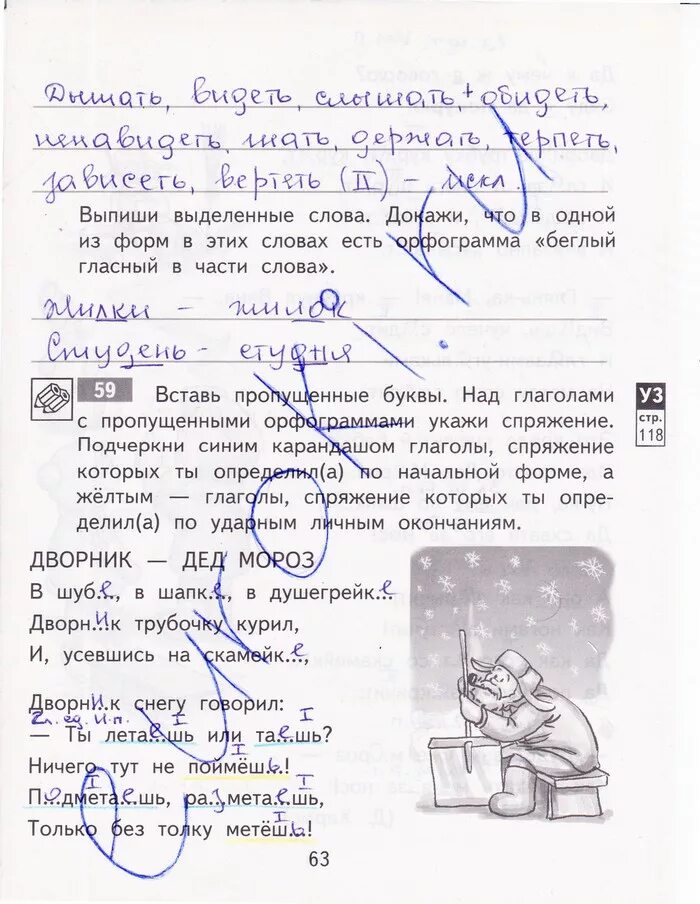 Дышать, видеть, слышать, + обидеть,
ненавидеть, гнать, держать, терпеть,
зависеть, вертеть (II) – искл.
Выпиши выделенные слова. Докажи, что в одной
из форм в этих словах есть орфограмма «беглый
гласный в части слова».
Жилки – жилок
Студень – студня
59 Вставь пропущенные буквы. Над глаголами
с пропущенными орфограммами укажи спряжение.
Подчеркни синим карандашом глаголы, спряжение
которых ты определил(а) по начальной форме, а
жёлтым — глаголы, спряжение которых ты опре-
делил(а) по ударным личным окончаниям.
УЗ
стр.
118
ДВОРНИК — ДЕД МОРОЗ
В шубе, в шапке, в душегрейке
Дворник трубочку курил,
И, усевшись на скамейке,
Дворник снегу говорил:
2л. ед. И.п. I I
— Ты летаешь или таешь?
I
Ничего тут не поймёшь!
I I
Подметаешь, разметаешь,
I
Только без толку метёшь!
63